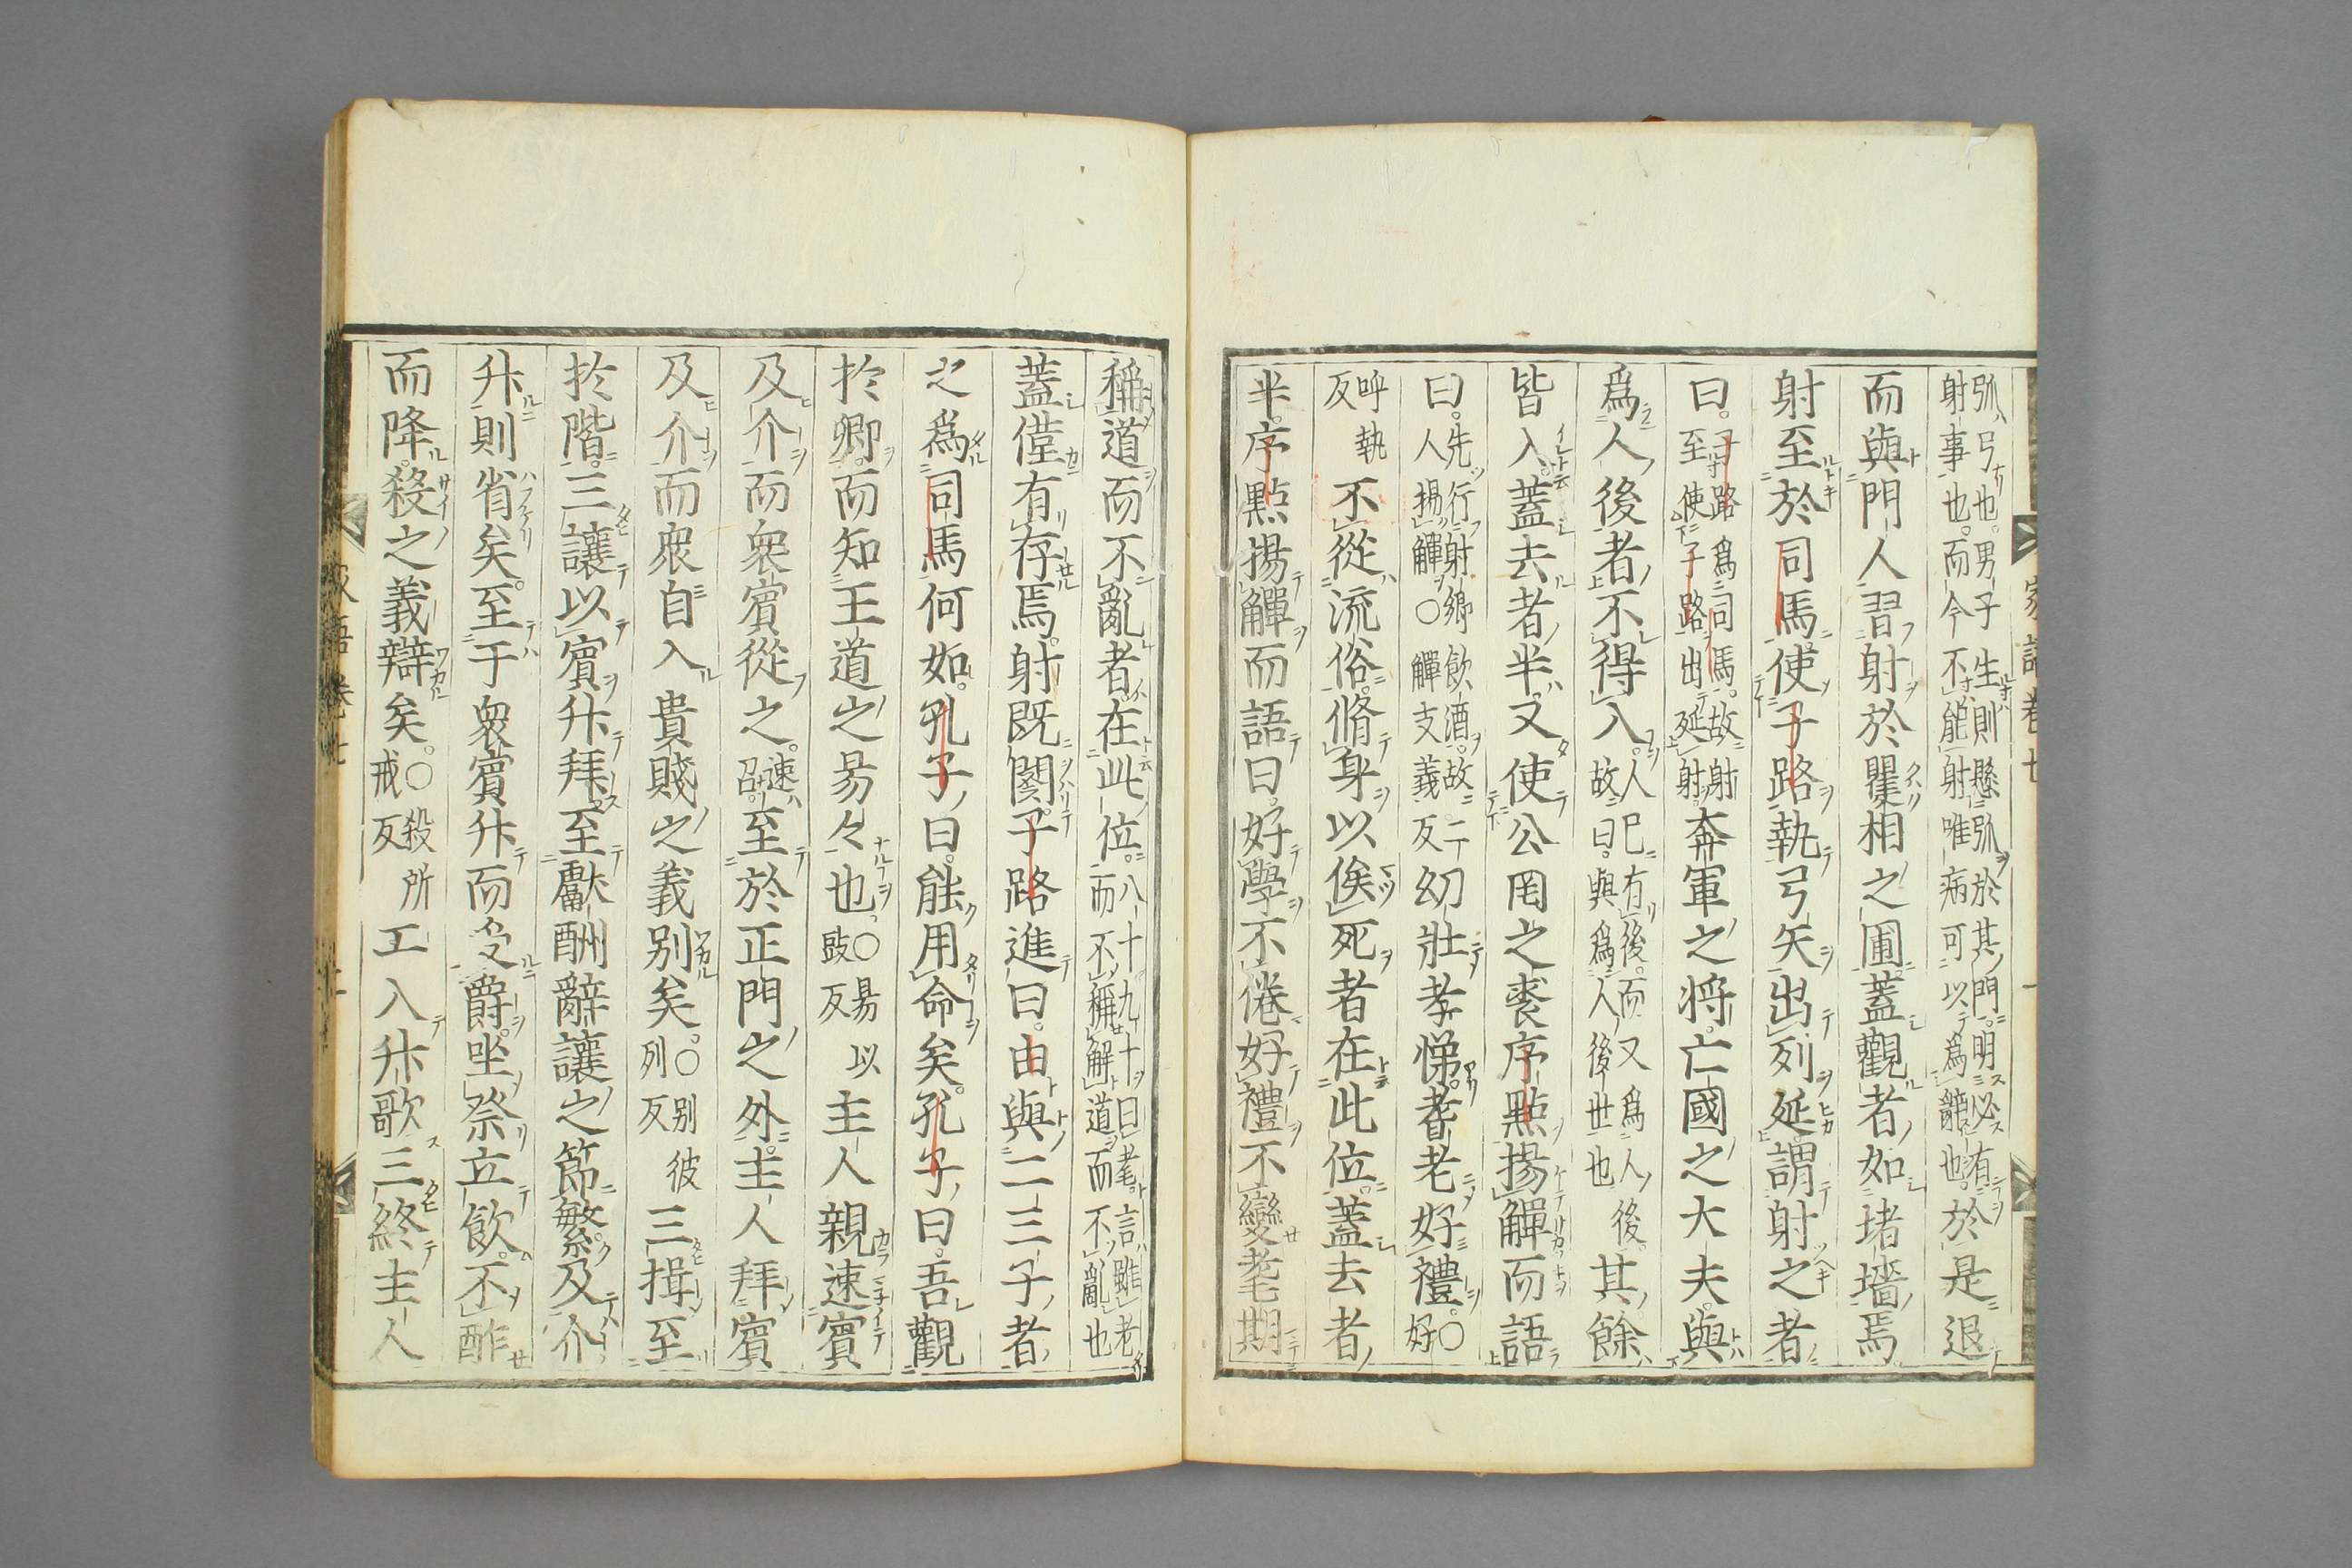 弧弓也。男子生則懸弧於其門。明必有
射事也。而今不能射唯病可以爲辭也。於是退
而與門人習射於矍相之圃。蓋觀者如堵墻焉
射至於司馬。使子路執弓矢出列延謂射之者
曰。子路爲司馬。故射
至使子路出延射奔軍之將。亡國之大夫。與
爲人後者不得入。人已有後。而又爲人後
故曰。與爲人後世也其餘
皆入。蓋去者半。又使公罔之裘序點揚觶而語
曰。先行射鄉飲酒。故二
人揚觶〇觶支義反幼壯孝悌。耆老好禮。〇好
呼報
反不從流俗。脩身以俟死者在此位。蓋去者
半。序點揚觶而語曰。好學不倦好禮不變耄期
稱道而不亂者。在此位。八十九十曰耄。言雖老
而不稱解道而不亂也
蓋僅有存焉。射既闋。子路進曰。由與二三子者
之爲司馬何如。孔子曰。能用命矣。孔子曰。吾觀
於鄉。而知王道之易々也。〇易以
豉反主人親速賓
及介而衆賓從之。速
召。至於正門之外。主人拜賓
及介而衆自入貴賤之義別矣。〇別彼
列反三揖至
於階。三讓以賓升拜。至獻酬辭讓之節繁。及介
升則省矣。至于衆賓升而受爵。坐祭立飲。不酢
而降。殺之義辯矣。〇殺所
戒反工入升歌三終主人
家語卷七
家語卷七